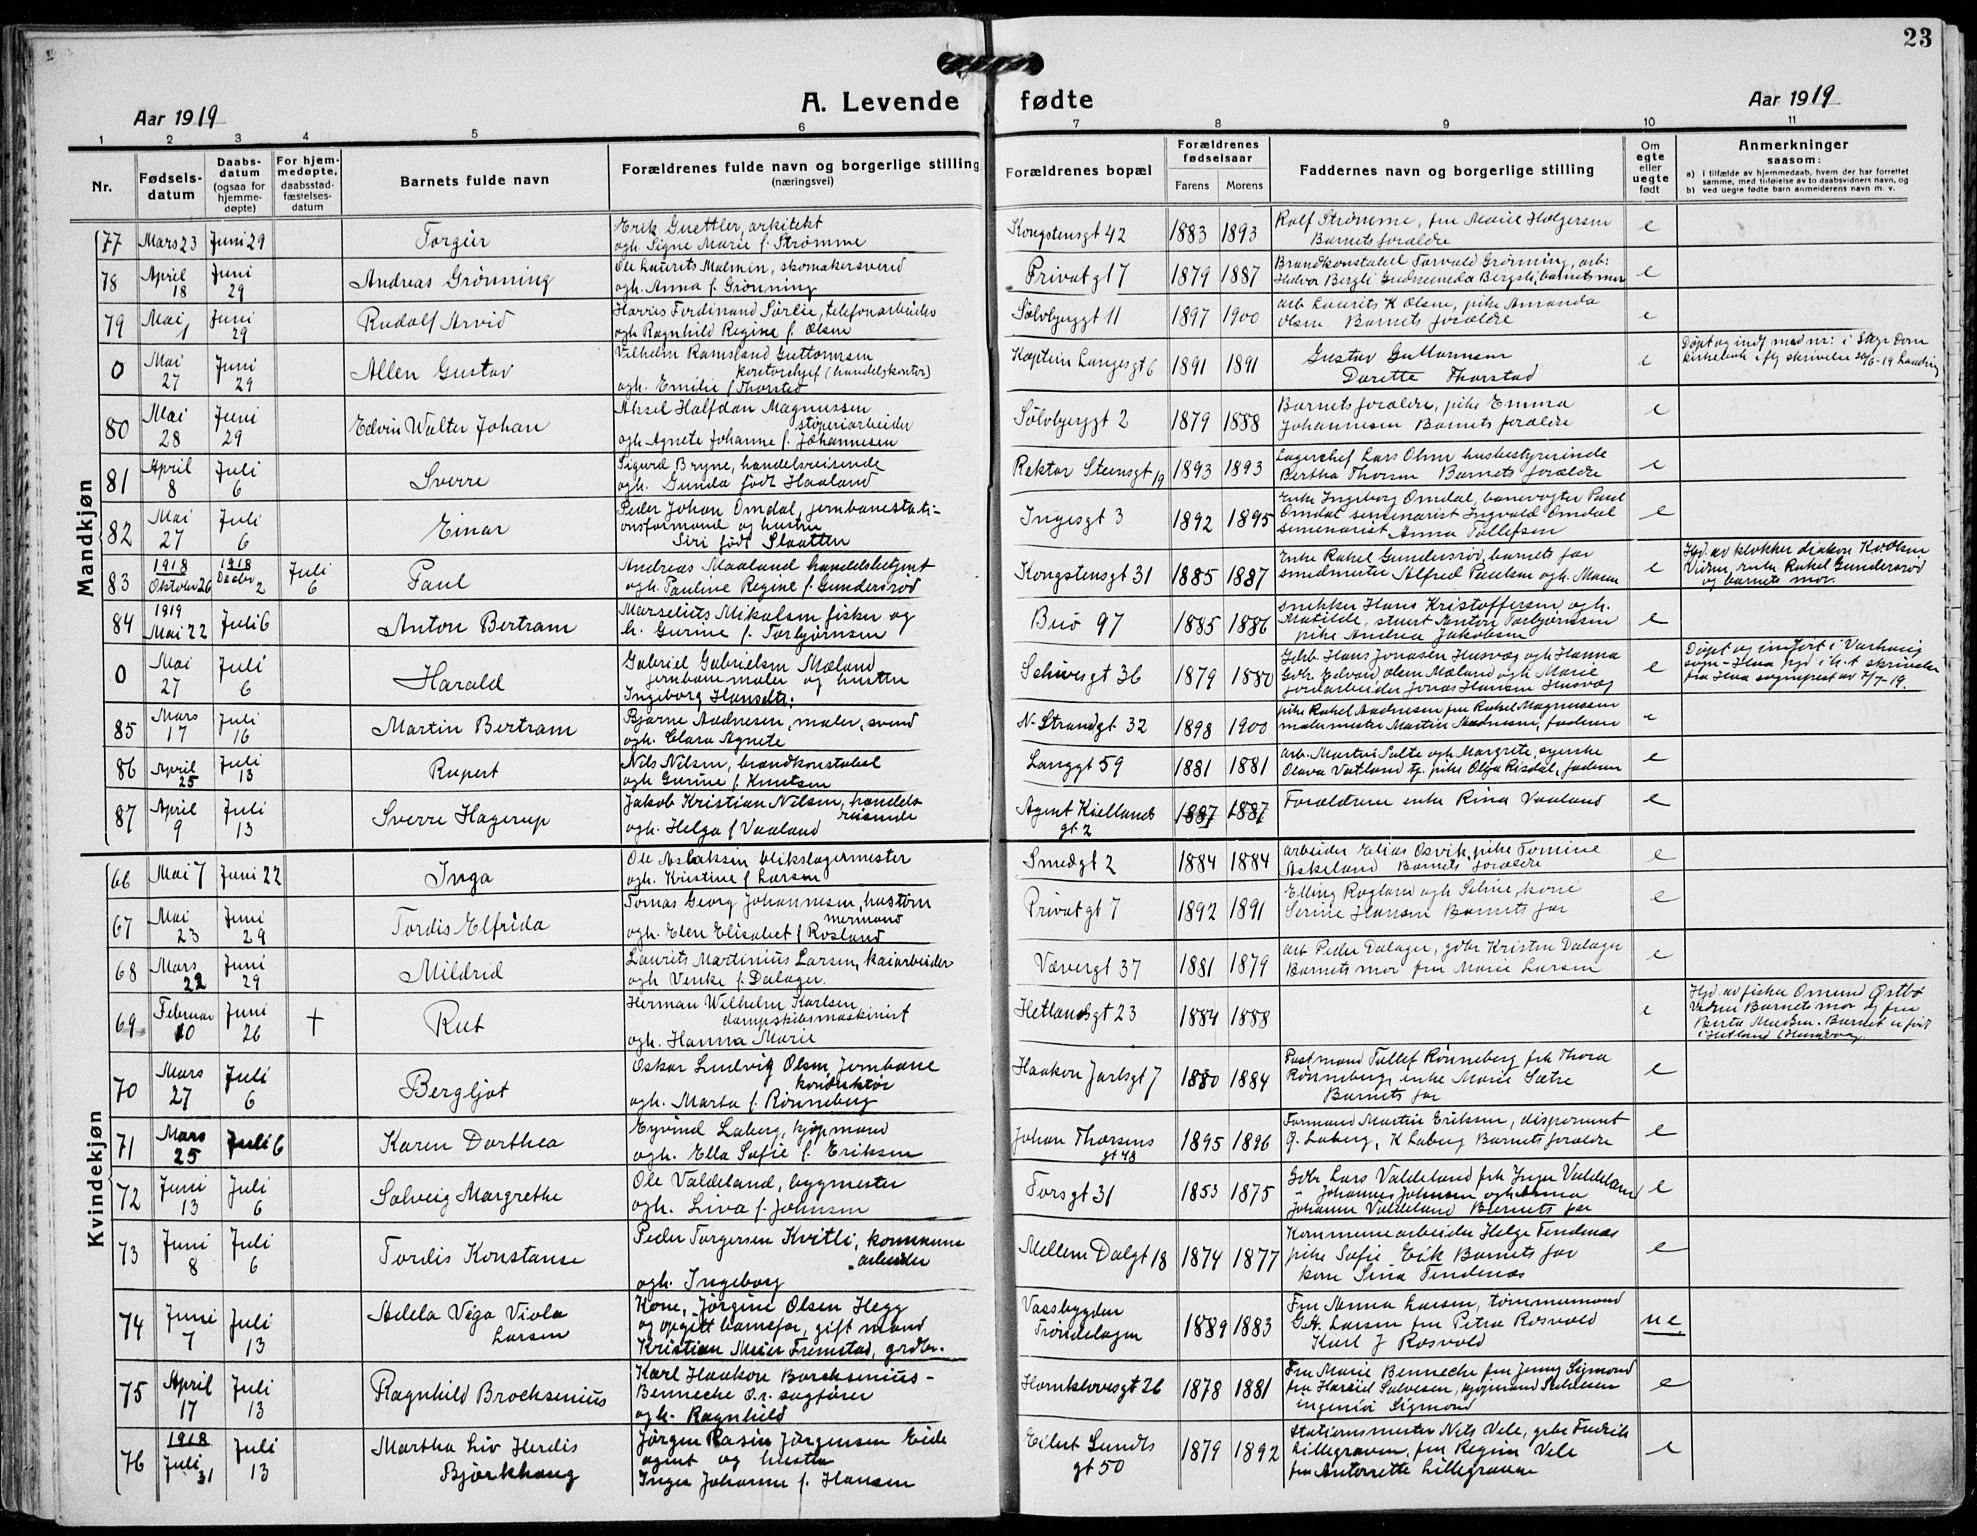 23
A. Levende fødte
Aar 1919
Aar 1919
1 2 3 4 5 6 7 8 9 10 11
Nr.
Fødsels-
datum
Daabs-
datum
(ogsaa for
hjemme-
døpte)
For hjem-
medøpte,
daabsstad-
fæstelses-
datum
Barnets fulde navn
Forældrenes fulde navn og borgerlige stilling
(næringsvei)
Forældrenes bopæl
Forældrenes
fødselsaar
Farens
Morens
Faddernes navn og borgerlige stilling
Om
egte
eller
uegte
født
Anmerkninger
saasom:
a) i tilfælde av hjemmedaab, hvem der har forrettet
samme, med tilføielse av to daabsvidners navn, og
b) ved uegte fødte barn anmelderens navn m. v.
Mandkjøn
77 Mars 23 Juni 29 Torgeir
Erik Guettler, arkitekt
ogh. Signe Marie f. Strømme
Kongstensgt 42 1883 1893
Rolf Strømme, fru Marie Holgersen
Barnets forældre
e
78 April 18 Juni 29 Andreas Grønning
Ole Laurits Malmin, skomakersvend
ogh. Anna f. Grønning
Privatgt 7 1879 1887
Brandkonstabel Torvald Grønning, arb:
Halvor Bergli Gudmunda Bergsli, barnets mor
e
79 Mai 1 Juni 29 Rudolf Arvid
Ferdinand Sørlie, telefonarbeider
ogh Ragnhild Regine f. Olsen
Sølvbjerggt 11 1897 1900
arb Laurits K Olsen, pike Amanda
Olsen Barnets forældre
e
0 Mai 27 Juni 29 Allen Gustav
Vilhelm Ramsland Guttormsen
kontorchef (handelskontor)
ogh. Emilie f Thorstad
Kaptein Langesgt 6 1891 1891
Gustav Guttormsen
Dorette Thorstad
e
Døpt og indf med nr: i Stgr Dom
kirkebok iflg skrivelse 30/6-19
80 Mai 28 Juni 29 Edvin Walter Johan
Aksel Halfdan Magnussen
støperiarbeider
ogh Agnete Johanne f. Johannesen
Sølvbjerggt 2 1879 1888
Barnets forældre, pike Emma
Johannesen Barnets forældre
e
81 April 8 Juli 6 Sverre
Sigurd Bryne, handelsreisende
ogh. Gunda født Haaland
Rektor Steensgt 19 1893 1893
Lagerchef Lars Olsen husbestyrerinde
Bertha Thorsen Barnets forældre
e
82 Mai 27 Juli 6 Einar
Peder Johan Omdal, jernbanestati-
onsformand og hustru
Siri født Slaatten
Ingesgt 3 1892 1895
Enke Ingeborg Omdal, banevogter Paul
Omdal seminarist Ingvald Omdal
seminarist Anna Tollefsen
e
83 1918 Oktober 26 1918 Decbr 2 Juli 6 Paul
Andreas Maaland handelsbetjent
ogh. Pauline Regine f. Gundersrød
Kongstensgt 31 1885 1887
Enke Rakel Gundersrød, barnets far
smedmester Alfred Paulsen ogh. Maren
e
Hjd. av klokker diakon K. Olsen
Vidner, enke Rakel Gundersrød
og barnets mor.
84 1919 Mai 22 Juli 6 Anton Bertram
Marselius Mikalsen fisker og
h. Gurine f. Torbjørnsen
Buø 97 1885 1886
snekker Hans Kristoffersen ogh.
Matilde, stuert Anton Torbjørnsen
pike Andrea Jakobsen
e
0 Mai 27 Juli 6 Harald
Gabriel Gabrielsen Mæland
jernbanemaler og hustru
Ingeborg Hansdtr:
Schivesgt 36 1879 1880
Gdbr. Hans Jonasen Husvæg ogh Hanna
Gbr. Edvard Olsen Mæland ogh Marie
jordarbeider Jonas Hansen Husvæg
e
Døpt og indført i Varhaug
sogn - Hena pgd i h.t skrivelse
fra Hena sogneprest av 7/7-19.
85 Mars 17 Juli 16 Martin Bertram
Bjarne Aadnesen, maler, svend
ogh. Clara Agnete
N. Strandgt 32 1898 1900
pike Rakel Aadnesen fru Rakel Magnussen
malermester Martin Aadnesen, faderen
e
86 April 25 Juli 13 Rupert
Nils Nilsen, brandkonstabel
ogh Gurine f. Knutsen
Langgt 59 1881 1881
arb. Martin Salte ogh Margrete, syerske
Olava Vatland tj. pike Olga Risdal, faderen
e
87 April 9 Juli 13 Sverre Hagerup
Jakob Kristian Nilsen, handels
reisende
ogh. Helga f Vaaland
Agent Kiellands
gt 2 1887 1887
Forældrene enke Rina Vaaland
e
Kvindekjøn
66 Mai 7 Juni 22 Inga
Ole Aslaksen blikslagermester
ogh. Kristine f Larsen
Smedgt 2 1884 1884
arbeider Elias Osvik, pike Tomine
Askeland Barnets forældre
e
67 Mai 23 Juni 29 Tordis Elfrida
Tomas Georg Johannesen, hustøm
mermand
ogh. Elen Elisabet f Rosland
Privatgt 7 1892 1891
Elling Rogland ogh Seline, kone
Serine Hansen Barnets far
e
68 Mars 22 Juni 29 Mildrid
Laurits Martinius Larsen, kaiarbeider
ogh Venke f. Dalager.
Vævergt 37 1881 1879
arb Peder Dalager, gdbr Kristen Dalager
Barnets mor fru Marie Larsen
e
69 Februar 10 Juni 26 + Rut
Herman Wilhelm Karlsen
dampskibsmaskinist
ogh. Hanna Marie
Hetlandsgt 23 1884 1888
e
Hjd. av fisker Omund Østbø
Vidner Barnets mor og fru
Berta Madsen. Barnet er født
i Hetland (Hundvaag
70 Mars 27 Juli 6 Bergljot
Oskar Ludvig Olsen, Jernbane
konduktør
ogh. Marta f. Rønneberg
Haakon Jarlsgt 7 1880 1884
Postmand Tollef Rønneberg frk Thora
Rønneberg, enke Marie Sætre
Barnets far
e
71 Mars 25 Juli 6 Karen Dorthea
Eyvind Laberg, kjøpmand
ogh. Ella Sofie f. Eriksen
Johan Thorsens
gt 48 1895 1896
Formand Martin Eriksen, disponent
G. Laberg, K Laberg Barnets forældre
e
72 Juni 13 Juli 6 Solveig Margrethe
Ole Valdeland, bygmester
ogh. Liva f. Johnsen
Torsgt 31 1853 1875
Gdbr Lars Valdeland frk Inga Valdeland
" Johannes Johnsen ogh Anna
Johanne Valdeland Barnets far
e
73 Juni 8 Juli 6 Tordis Konstanse
Peder Torgersen Kvitli, kommune
arbeider
ogh. Ingeborg
Mellem Dalgt 18 1874 1877
Kommunearbeider Helge Tendenæs
pike Sofie Eik Barnets far
kone Sina Tendenæs
e
74 Juni 7 Juli 13 Adela Vega Viola
Larsen
Kone, Jörgine Olsen Hegg
og opgitt barnefar, gift mand
Kristian Meier Fremstad, grdbr.
Vassbygden
Trøndelagen 1889 1883
Fru Anna Larsen, tømmermand
G.A. Larsen fru Petra Rosvold
Karl J Rosvold
ue
75 April 17 Juli 13 Ragnhild Brochsenius
Karl Haakon Borchsenius-
Bennecke o.r. sagfører
ogh. Ragnhild
Hornklovesgt 26 1878 1881
Fru Marie Bennecke fru Jenny Sigmond
fru Harriet Salvesen, kjøpmand Salvesen
ingeniør Sigmond
e
76 1918 Juli 31 Juli 13 Martha Liv Herdis
Bjørkhaug
Jørgen Rasin Jørgensen Eide
agent og hustru
Inga Johanne f. Hansen
Eilert Sundts
gt 50 1879 1892
Stationsmester Nils Vele, gdbr Fredrik
Lillegraven, fru Regine Vele
fru Antonette Lillegraven
e